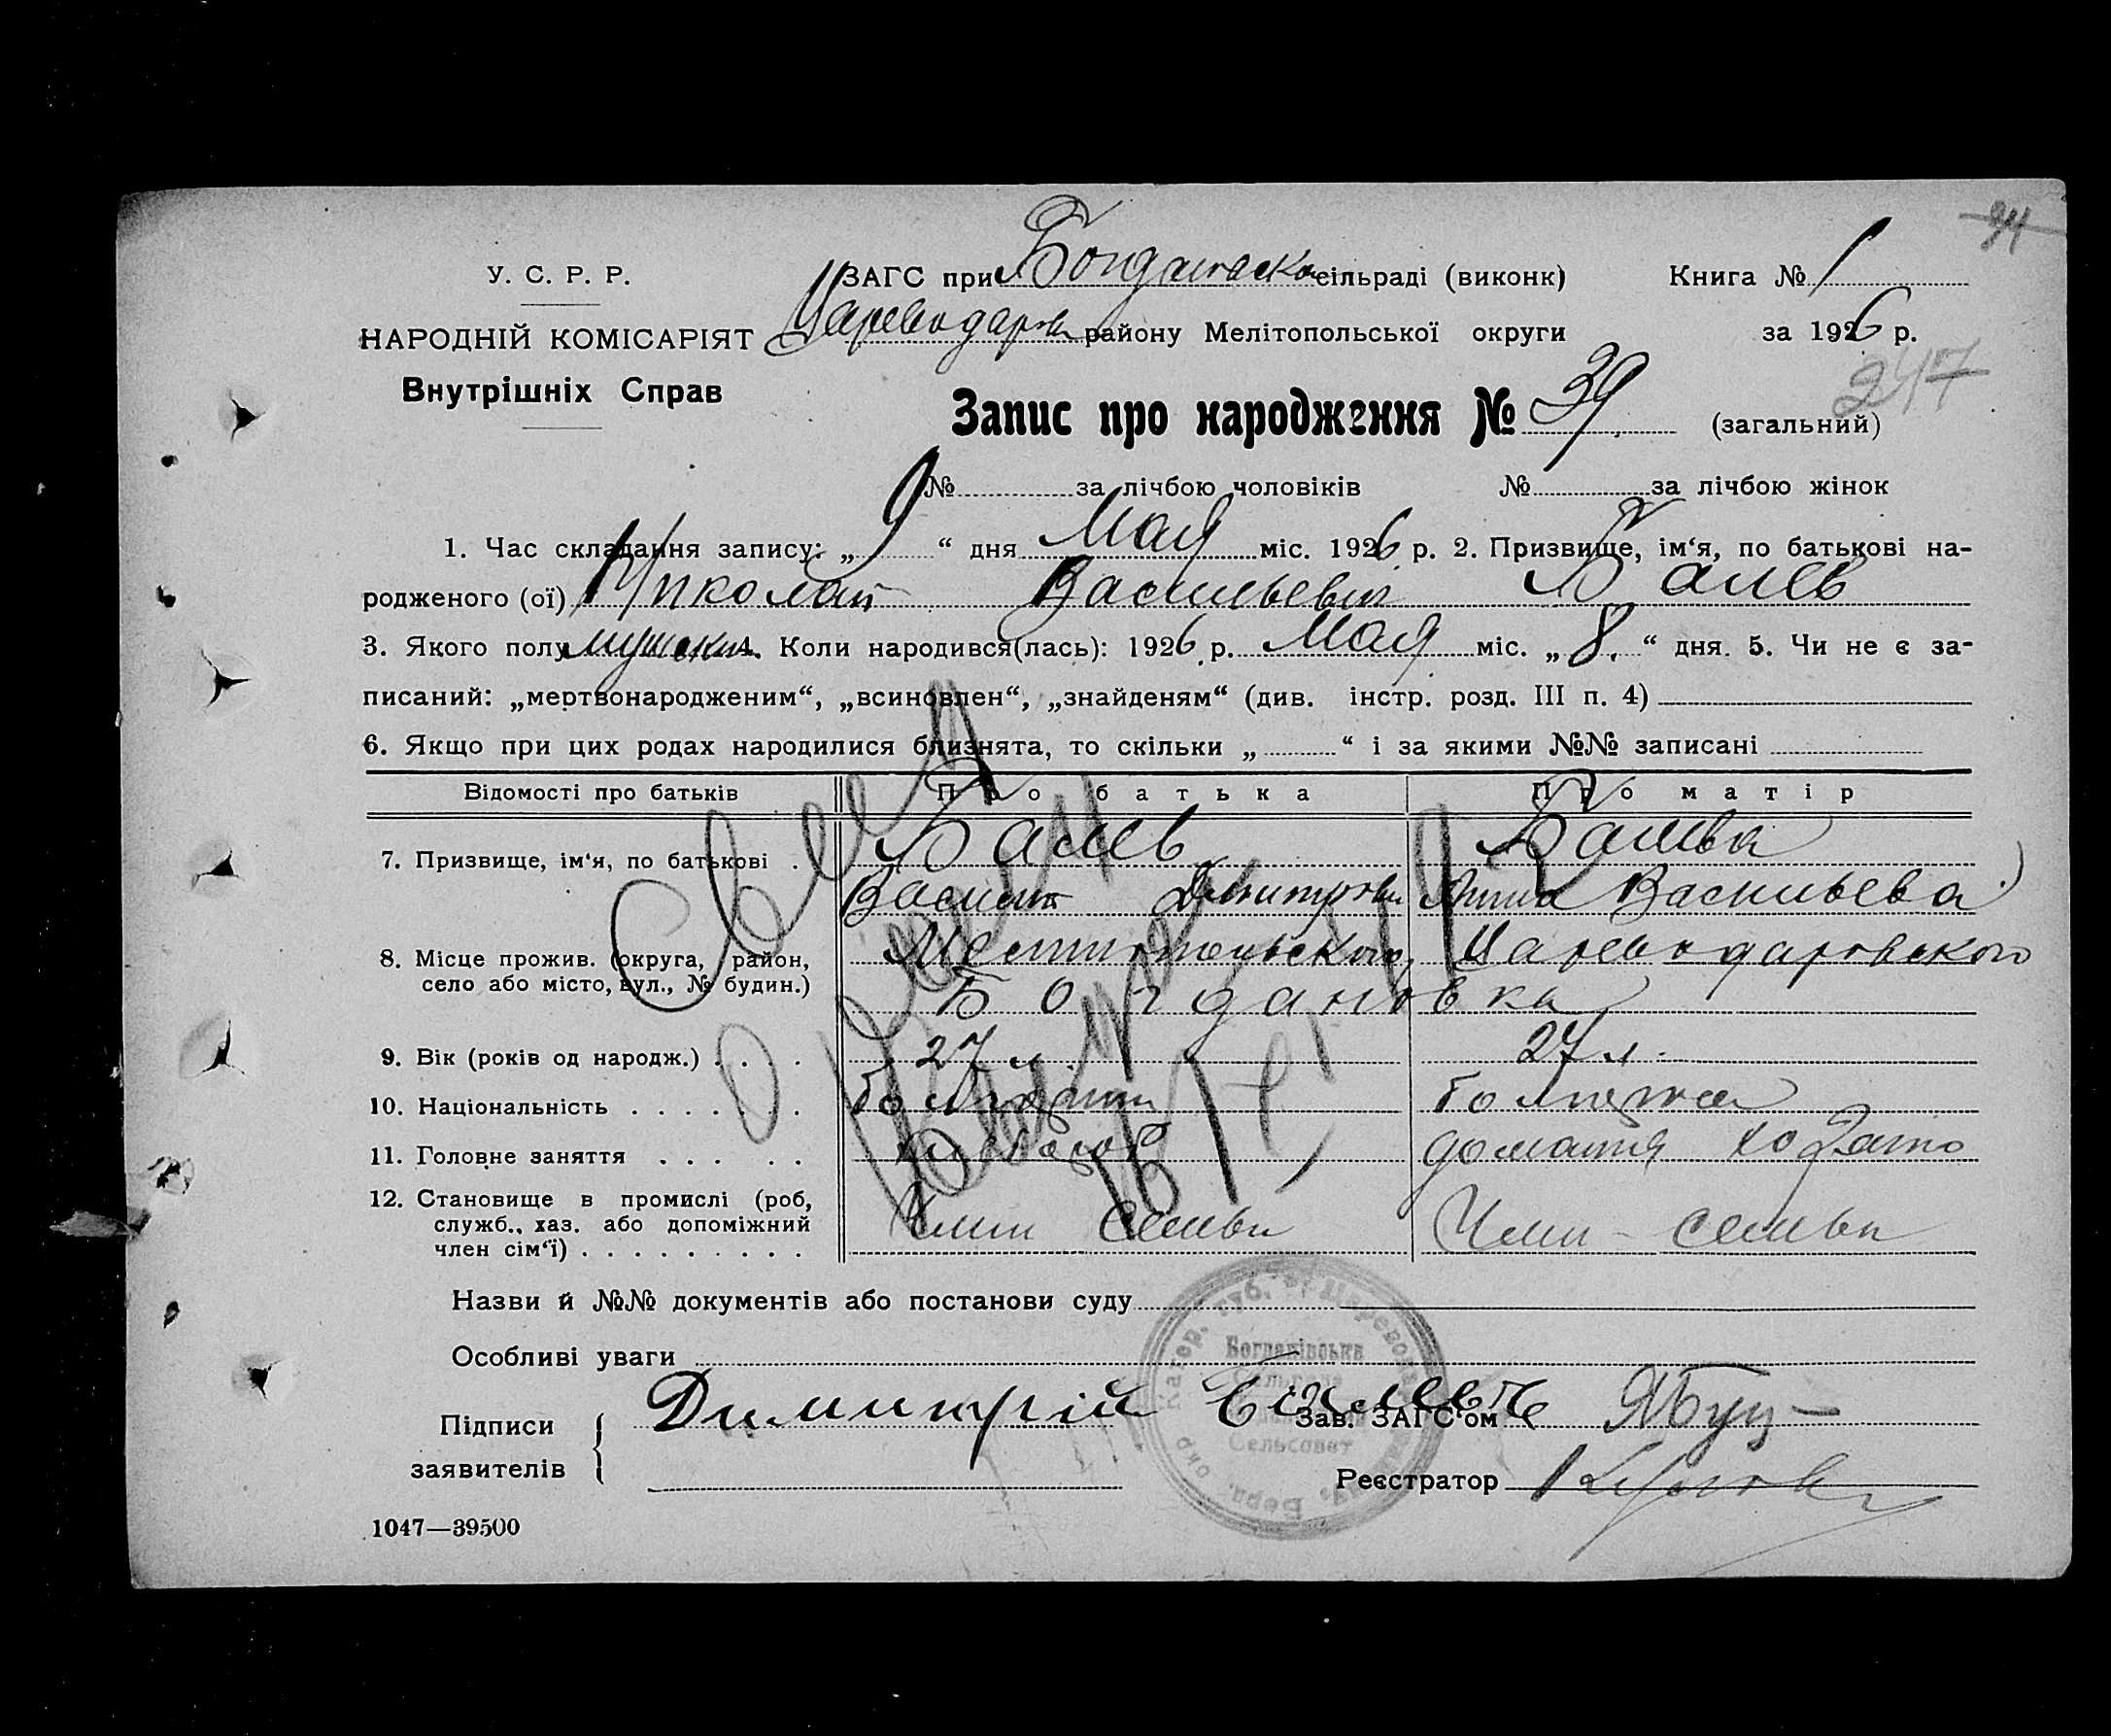 У. С. Р. Р.
НАРОДНІЙ КОМІСАРІЯТ
Внутрішніх Справ
ЗАГС при сільраді (виконк)
району Мелітопольської округи
Книга № 1
за 1926 р.
247
Запис про народження № 39 (загальний)
№ за лічбою чоловіків № за лічбою жінок
1. Час складання запису: „ 9 “ дня Мая міс. 1926 р. 2. Призвище, ім‘я, по батькові на-
родженого (ої) Николай Васильевич Балев
3. Якого полу мужски 4. Коли народився(лась): 1926 р. Мая міс. „ 8. “ дня. 5. Чи не є за-
писаний: „мертвонародженим“, „всиновлен“, „знайденям“ (див. інстр. розд. III п. 4)
6. Якщо при цих родах народилися близнята, то скільки „ “ і за якими №№ записані
Відомості про батьків Про батька Про матір
7. Призвище, ім‘я, по батькові . Балев Балева
Василий Дмитров Анна Васильева
8. Місце прожив. (округа, район, Цареводаровского
село або місто, вул., № будин.) Богдановка
9. Вік (років од народж.) . . . . 27 л. 27 л.
10. Національність . . . . . . .
11. Головне заняття . . . . . хлебороб домашня
12. Становище в промислі (роб,
служб., хаз. або допоміжний Член семьи Член семьи
член сім‘ї) . . . . . . . . .
Назви й №№ документів або постанови суду
Особливі уваги
Богданівська
Сельсовет
Підписи
заявителів
Димитрій Балевъ
Зав. ЗАГС‘ом
Реєстратор
1047—39500